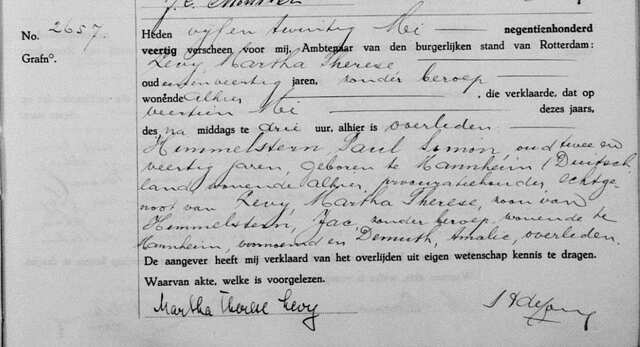 J. C. Monster
No. 2657.
Grafn°.
Heden vyfentwintig Mei negentienhonderd
veertig verscheen voor mij, Ambtenaar van den burgerlijken stand van Rotterdam:
Levy Martha Therese
oud eenenveertig jaren, zonder beroep
wonende alhier, die verklaarde, dat op
veertien Mei dezes jaars,
des na middags te drie uur, alhier is overleden:
Himmelstern, Paul Simon, oud twee en
veertig jaren, geboren te Mannheim (Duitsch-
land wonende alhier, procuratiehouder, echtge-
noot van Levy, Martha Therese, zoon van
Himmelstern, Jac, zonder beroep, wonende te
Mannheim, voornoemd en Demuth, Amalie, overleden.
De aangever heeft mij verklaard van het overlijden uit eigen wetenschap kennis te dragen.
Waarvan akte, welke is voorgelezen.
Martha Therese Levy